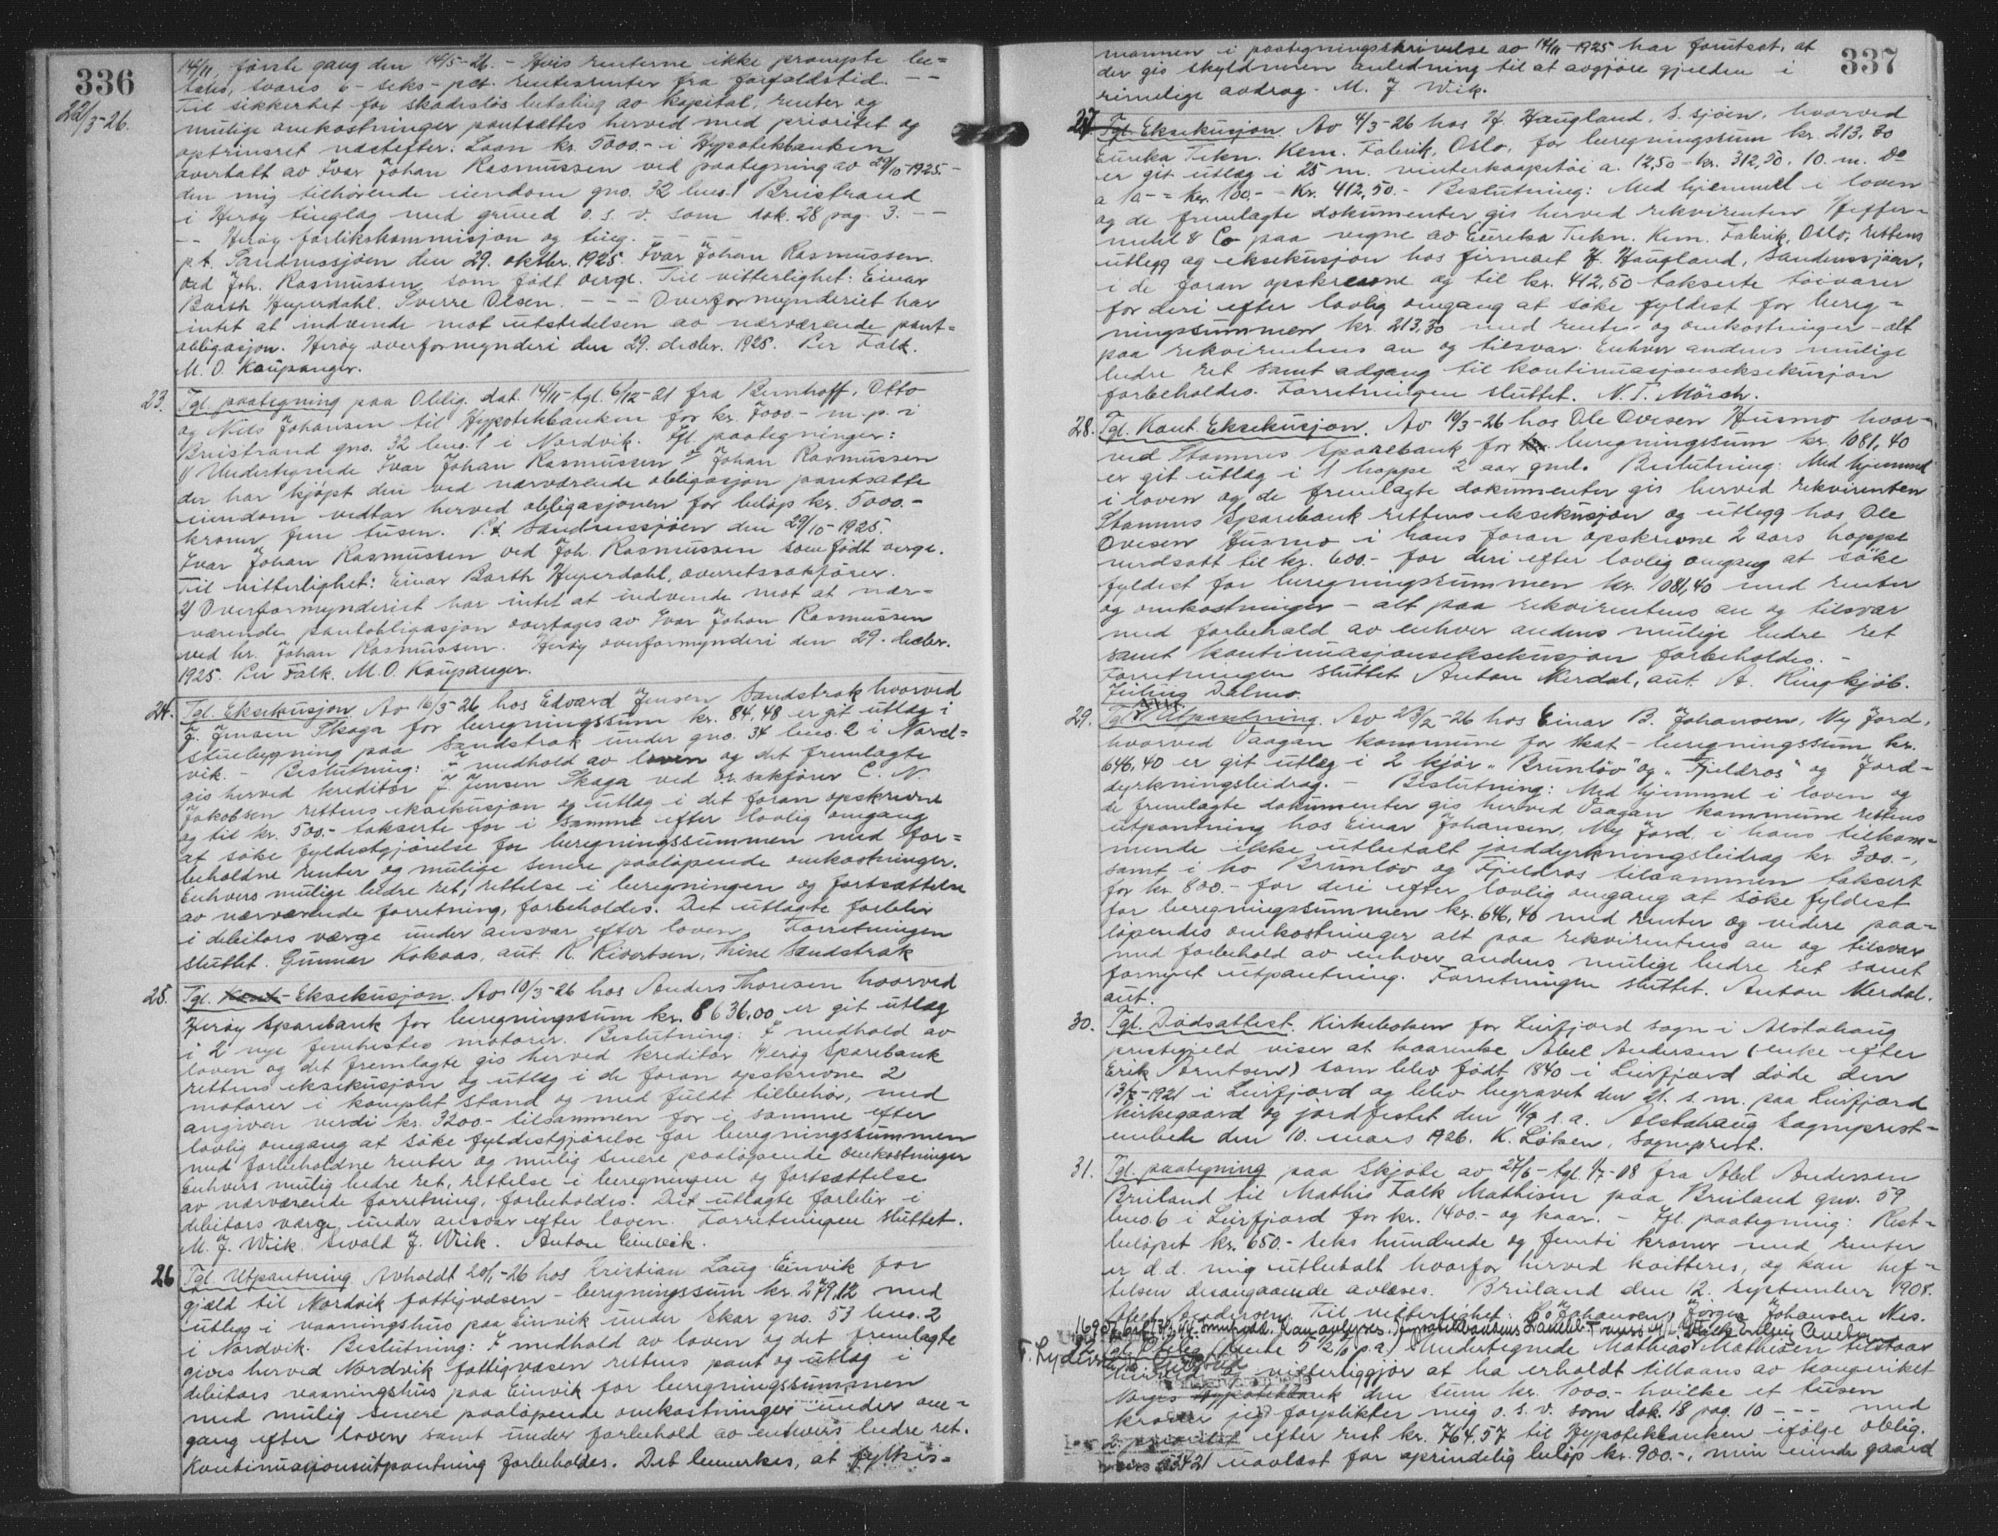 336
22/3-26.
14/11, første gang den 14/5-26. - Hvis renterne ikke prompte be=
tales, svares 6 - seks - pct. rentesrenter fra forfaldstid. - -
Til sikkerhet for skadesløs betaling av kapital, renter og
mulige omkostninger pantsættes herved med prioritet og
optrinsret næstefter: Laan kr. 5000.- i Hypotekbanken
overtatt av Ivar Johan Rasmussen ved paategning av 29/10-1925. -
den mig tilhørende eiendom gno. 32 bno. 1 Breistrand
i Herøy tinglag med grund o. s. v. som dok. 28 pag. 3. - -
- - Herøy forlikskommisjon og ting.
p.t. Sandnessjøen den 29. oktbr. 1925. Ivar Johan Rasmussen.
ved Joh. Rasmussen som født verge. Til vitterlighet: Einar
Barth Heyerdahl. Sverre Olsen. - - - Overformynderiet har
intet at indvende mot utstedelsen av nærværende pant=
obligasjon. Herøy overformynderi den 29. decbr. 1925. Per Falk.
M. O. Kaupanger.
23. Tgl. paategning paa Oblig. dat. 14/11-tgl. 6/12-21 fra Bernhoff, Otto
og Nils Johansen til Hypotekbanken for kr. 7000.- m. p. i
Breistrand gno. 32 bno. 1 i Nordvik. Ifl. paategninger:
1/ Undertegnede Ivar Johan Rasmussen Johan Rasmussen
der har kjøpt den ved nærværende obligasjon pantsatte
eiendom vedtar herved obligasjonen for beløp kr. 5000.-
kroner fem tusen. P.t. Sandnessjøen den 29/10-1925.
Ivar Johan Rasmussen ved Joh. Rasmussen som født verge.
Til vitterlighet: Einar Barth Heyerdahl, overretssakfører.
2/ Overformynderiet har intet at indvende mot at nær=
værende pantobligasjon overtages av Ivar Johan Rasmussen
ved hr. Johan Rasmussen. Herøy overformynderi den 29. decbr.
1925. Per Falk. M. O. Kaupanger.
24. Tgl. Eksekusjon. Av 16/3-26 hos Edvard Jensen Sandstrak hvorved
J. Jensen Skaga for beregningssum kr. 84,48 er git utlæg i
stuebygning paa Sandstrak under gno. 34 bno. 2 i Nord=
vik. - Beslutning: I medhold av loven og det fremlagte
gis herved kreditor J. Jensen Skaga ved o.r. sakfører C. N.
Jakobsen rettens eksekusjon og utlæg i det foran opskrevne
og til kr. 500.- takserte for i samme efter lovlig omgang
at søke fyldestgjørelse for beregningssummen med for=
beholdne renter og mulige senere paaløpende omkostninger.
Enhvers mulige bedre ret, rettelse i beregningen og fortsættelse
av nærværende forretning, forbeholdes. Det utlagte forblir
i debitors værge under ansvar efter loven. Forretningen
sluttet. Gunnar Kokaas, aut. R. Rivertsen, Trine Sandstrak
25. Tgl. Kont. Eksekusjon. Av 10/3-26 hos Anders Thoresen hvorved
Herøy Sparebank for beregningssum kr. 8636,00 er git utlæg
i 2 nye femhestes motorer. Beslutning: I medhold av
loven og det fremlagte gis herved kreditor Herøy Sparebank
rettens eksekusjon og utlæg i de foran opskrevne 2
motorer i komplet stand og med fuldt tilbehør, med
angiven verdi kr. 3200.- tilsammen for i samme efter
lovlig omgang at søke fyldestgjørelse for beregningssummen
med forbeholdne renter og mulig senere paaløpende omkostninger
Enhvers mulig bedre ret, rettelse i beregningen og fortsættelse
av nærværende forretning, forbeholdes. Det utlagte forblir i
debitors værge under ansvar efter loven. Forretningen sluttet.
M. J. Wiik. Evald J. Wiik. Anton Einvik.
26 Tgl. Utpantning. Avholdt 20/1-26 hos Kristian Laug Einvik for
gjæld til Nordvik fattigvæsen - beregningssum kr. 279,12 med
utlegg i vaaningshus paa Einvik under Skar gno. 53 bno. 2
i Nordvik. Beslutning: I medhold av loven og det fremlagte
gives herved Nordvik fattigvæsen rettens pant og utlæg i
debitors vaaningshus paa Einvik for beregningssummen
med mulig senere paaløpende omkostninger under om=
gang efter loven samt under forbehold av enhvers bedre ret.
Kontinuasjonsutpantning forbeholdes. Det bemerkes, at fylkes=
337
mannen i paategningsskrivelse av 14/11-1925 har forutsat, at
der gis skyldneren anledning til at avgjøre gjelden i
rimelige avdrag. M. J. Wiik.
27. Tgl. Eksekusjon. Av 4/3-26 hos H. Haugland, S. sjøen, hvorved
Eureka Tekn. Kem. Fabrik, Oslo, for beregningssum kr. 213,30
er git utlæg i 25 m. vinterkaapetøi a. 12,50 - kr. 312,50. 10. m. Do
a 10 - = kr. 100.- - Kr. 412,50.- Beslutning: Med hjemmel i loven
og de fremlagte dokumenter gis herved rekvirenten Heffer=
mehl & Co paa vegne av Eureka Tekn. Kem. Fabrik, Oslo, rettens
utlegg og eksekusjon hos firmaet H. Haugland, Sandnessjøen,
i de foran opskrevne og til kr. 412,50 takserte tøivarer
for deri efter lovlig omgang at søke fyldest for bereg=
ningssummen kr. 213,30 med renter og omkostninger - alt
paa rekvirentens an og tilsvar. Enhver andens mulige
bedre ret samt adgang til kontinuasjonseksekusjon
forbeholdes. Forretningen sluttet. N. T. Mörch.
28. Tgl. Kont. Eksekusjon. Av 10/3-26 hos Ole Ovesen Husmo hvor=
ved Stamnes Sparebank for beregningssum kr. 1081,40
er git utlæg i 1 hoppe 2 aar gml. Beslutning: Med hjemmel
i loven og de fremlagte dokumenter gis herved rekvirenten
Stamnes Sparebank rettens eksekusjon og utlegg hos Ole
Ovesen Husmo i hans foran opskrevne 2 aars hoppe
verdsatt til kr. 600.- for deri efter lovlig omgang at søke
fyldest for beregningssummen kr. 1081,40 med renter
og omkostninger - alt paa rekvirentens an og tilsvar
med forbehold av enhver andens mulige bedre ret
samt kontinuasjonseksekusjon forbeholdes. -
Forretningen sluttet Anton Merdal, aut. A. Ringkjøb.
Delmo.
29. Tgl. Utpantning. Av 23/2-26 hos Einar B. Johansen, Ny Jord,
hvorved Vaagan kommune for skat - beregningssum kr.
646,40 er git utlæg i 2 kjør "Brunløv" og "Fjeldros" og Jord=
dyrkningsbidrag. - Beslutning: Med hjemmel i loven og
de fremlagte dokumenter gis herved Vaagan kommune rettens
utpantning hos Einar Johansen, Ny Jord, i hans tilkom=
mende ikke utbetalt jorddyrkningsbidrag kr. 300.-,
samt i ko Brunløv og Fjeldros tilsammen taksert
for kr. 800.- for deri efter lovlig omgang at søke fyldest
for beregningssummen kr. 646,40 med renter og videre paa=
løpendes omkostninger alt paa rekvirentens an og tilsvar
med forbehold av enhver andens mulige bedre ret samt
fornyet utpantning. Forretningen sluttet. Anton Merdal.
aut.
30. Tgl. Dødsattest. Kirkeboken for Leirfjord sogn i Alstahaug
prestegjeld viser at kaarenke Abel Andersen (enke efter
Erik Arntsen) som blev født 1840 i Leirfjord døde den
13/7-1921 i Leirfjord og blev begravet den 21. s. m. paa Leirfjord
kirkegaard og jordfestet den 11/9 s. a. Alstahaug sogneprest=
embede den 10. mars 1926. K. Løken, sogneprest.
31. Tgl. paategning paa Skjøte av 27/6-tgl. 1/7-08 fra Abel Andersen
Breiland til Mathis Falk Mathisen paa Breiland gno. 59
bno. 6 i Leirfjord for kr. 1400.- og kaar. - Ifl. paategning: Rest=
beløpet kr. 650.- seks hundrede og femti kroner med renter
er d.d. mig utbetalt hvorfor herved kvitteres, og kan hef=
telsen desangaaende avlæses. Breiland den 12. september 1908.
Abel Andersen. Til vitterlighet: Johansen, Jørgen Johansen Nes.
Tgl. Oblig. (rente 5 1/2 % p.a.) Undertegnede Mathias Mathisen tilstaar
herved og vitterliggjør at ha erholdt tillaans av kongeriket
Norges Hypotekbank den sum kr. 1000.- hvilke et tusen
kroner jeg forplikter mig o. s. v. som dok. 18 pag. 10 - - - med
2. prioritet efter rest kr. 764,57 til Hypotekbanken ifølge oblig.
uavlæst for oprindelig beløp kr. 900.-, min eiende gaard